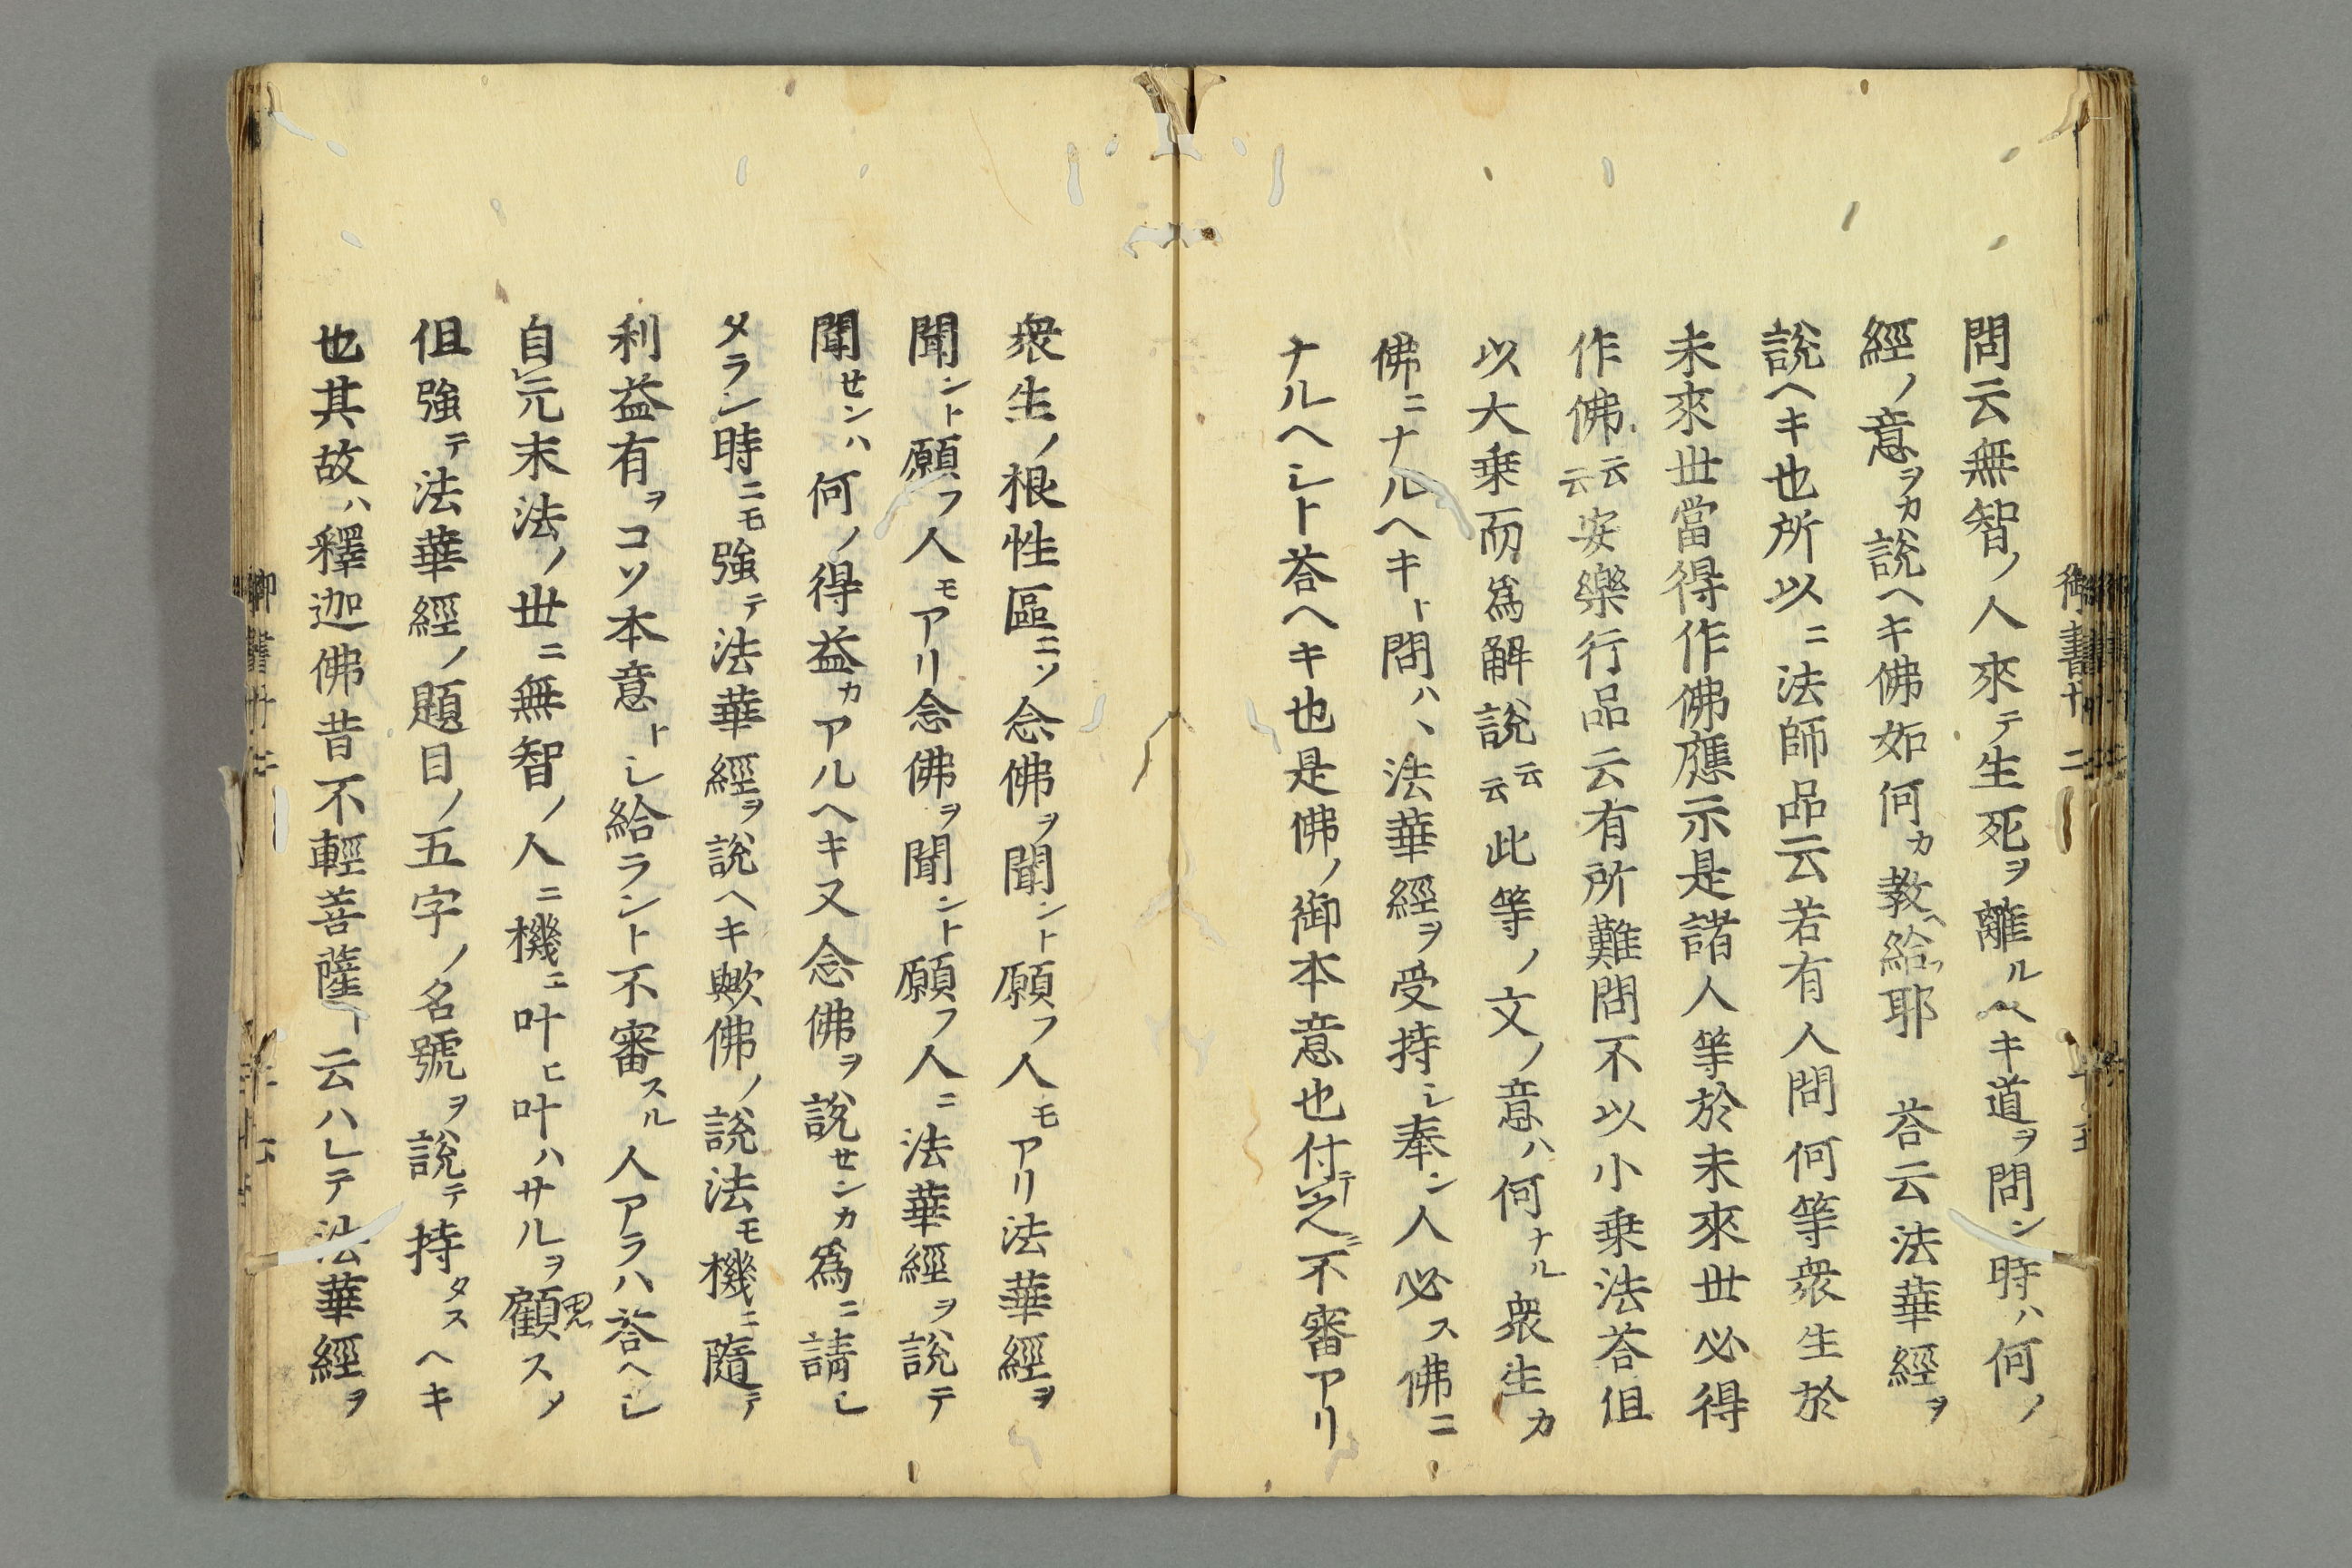 問云無智ノ人來テ生死ヲ離ルヘキ道ヲ問ン時ハ何ノ
經ノ意ヲカ説ヘキ佛如何カ教ヘ給耶　荅云法華經ヲ
説ヘキ也所以ニ法師品云若有人問何等衆生於
未來世當得作佛應示是諸人等於未來世必得
作佛云云安樂行品云有所難問不以小乗法荅但
以大乗而爲解説云云此等ノ文ノ意ハ何ナル衆生カ
佛ニナルヘキト問ハヽ法華經ヲ受持シ奉ン人必ス佛ニ
ナルヘシト荅ヘキ也是佛ノ御本意也付テ之ニ不審アリ
衆生ノ根性區ニソ念佛ヲ聞ント願フ人モアリ法華經ヲ
聞ント願フ人モアリ念佛ヲ聞ント願フ人ニ法華經ヲ説テ
聞せンハ何ノ得益カアルヘキ又念佛ヲ説せンカ爲ニ請シ
タラン時ニモ強テ法華經ヲ説ヘキ歟佛ノ説法モ機ニ隨テ
利益有ヲコソ本意トシ給ラント不審スル人アラハ荅ヘシ
自元末法ノ世ニ無智ノ人ニ機ニ叶ヒ叶ハサルヲ顧スメ
但強テ法華經ノ題目ノ五字ノ名號ヲ説テ持タスヘキ
也其故ハ釋迦佛昔不輕菩薩ト云ハレテ法華經ヲ
御書
御書